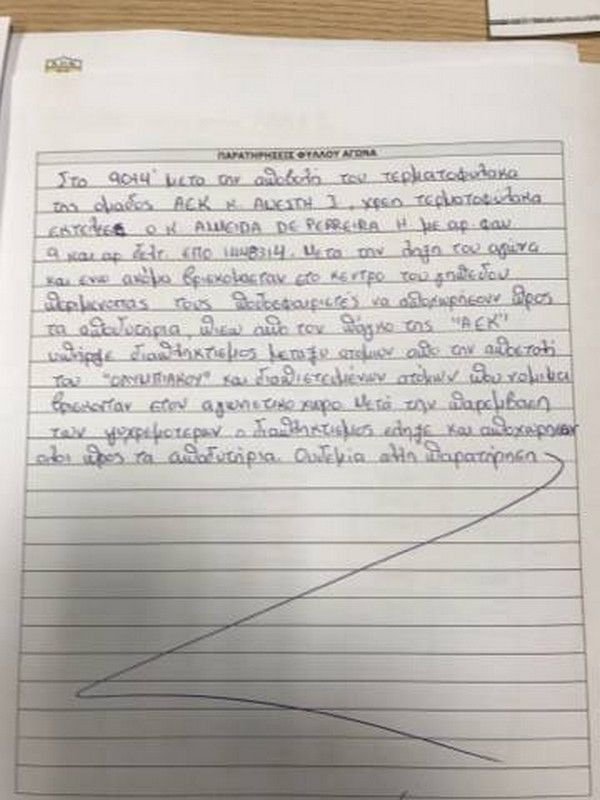 ΠΑΡΑΤΗΡΗΣΕΙΣ ΦΥΛΛΟΥ ΑΓΩΝΑ
Στο 90+4' μετα την αποβολη του τερματοφυλακα
της ομαδος ΑΕΚ κ. ΑΝΕΣΤΗ Ι, χρεη τερματοφυλακα
εκτελεσε ο κ. ALMEIDA DE PERREIRA H με αρ. φαν
9 και αρ δελτ. ΕΠΟ 1448314. Μετα την ληξη του αγωνα
και ενω ακομα βρισκομασταν στο κεντρο του γηπεδου
περιμενοντας τους ποδοσφαιριστες να αποχωρησουν προς
τα αποδυτηρια, πισω απο τον παγκο της "ΑΕΚ"
υπηρξε διαπληκτισμος μεταξυ ατομων απο την αποστολη
του "ΟΛΥΜΠΙΑΚΟΥ" και διαπιστευμένων ατόμων που νομιμα
βρισκονταν στον αγωνιστικο χωρο. Μετά την παρεμβαση
των ψυχρεμοτερων ο διαπληκτισμος εληξε και αποχωρησαν
ολοι προς τα αποδυτήρια. Ουδεμια αλλη παρατήρηση